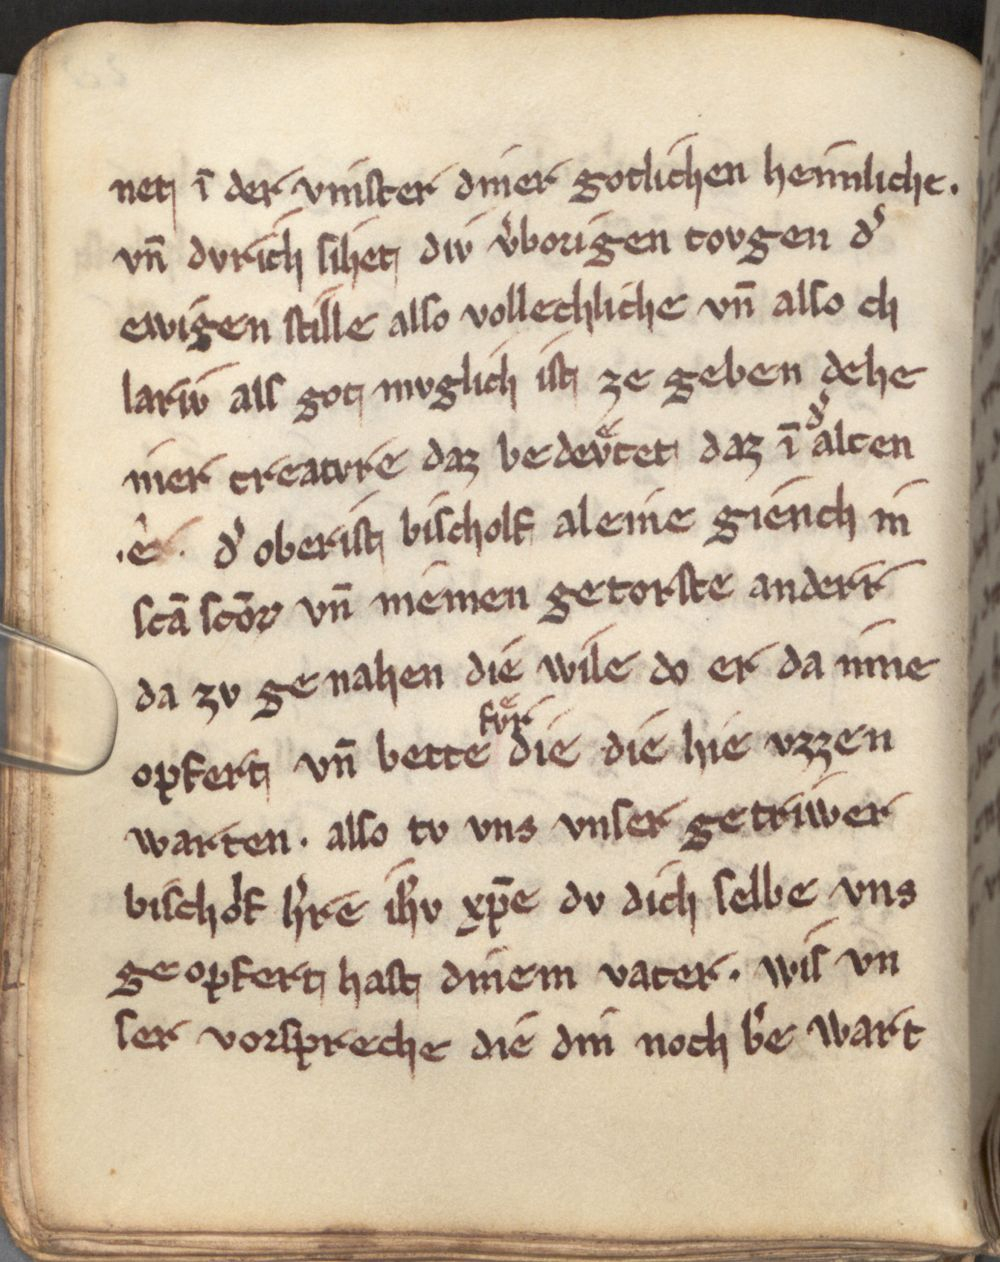 net ī der vinster diner gotlichen heimliche.
vn̄ dvrich sihet div v̓borigen tovgen d̓
ewigen stille also vollechliche vn̄ also ch
lariv als got mvglich ist ze geben dehe
nier creatvre daz bedevͤtet daz ī d̓ alten
.e. d̓ oberist bischolf aleine giench in
scā scōꝝ vn̄ niemen getorste anderr
da zv ge nahen die wile do er da inne
opfert vn̄ bette fvͤr die die hie vzzen
warten. also tv vns vnser getriwer
bischof h̓re ih̓v xp̄e dv dich selbe vns
geopfert hast dinem vater. wis vn
ser vorspreche die din noch h̓e wart